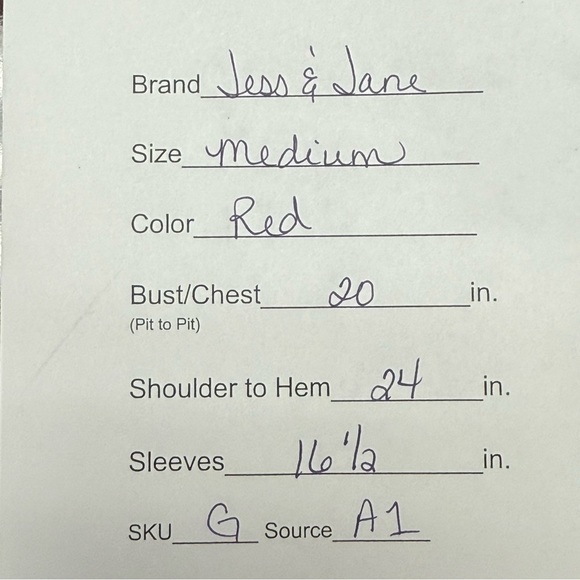 Brand Jess & Jane
Size Medium
Color Red
Bust/Chest 20 in.
(Pit to Pit)
Shoulder to Hem 24 in.
Sleeves 16 1/2 in.
SKU G Source A1